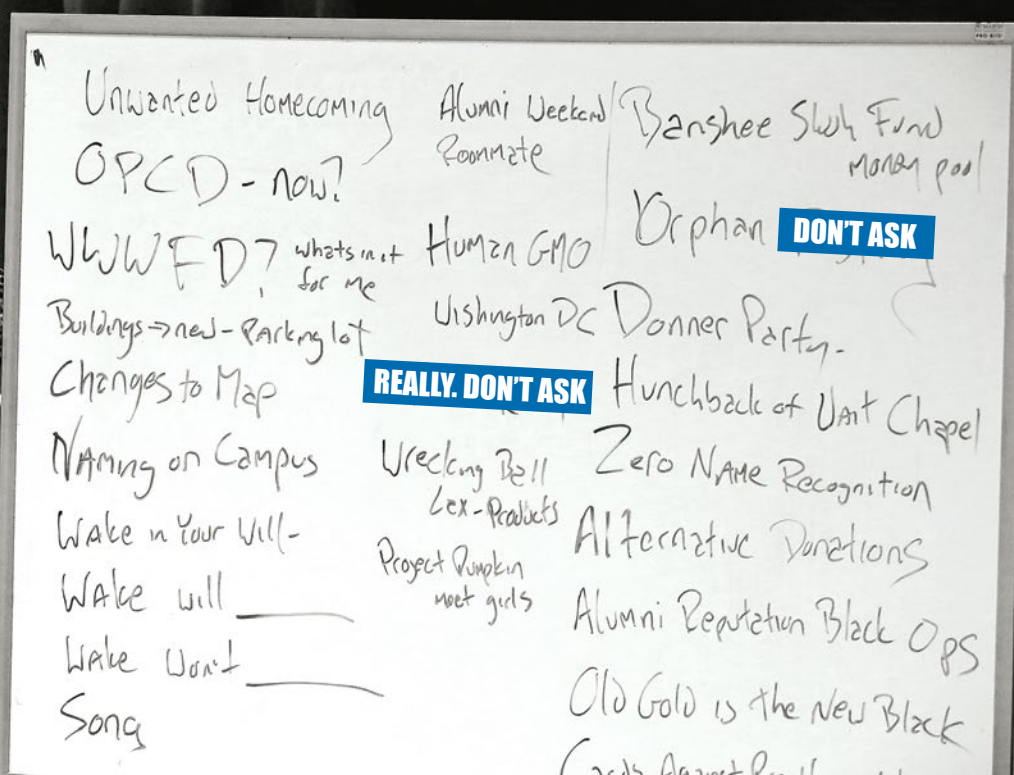 Unwanted Homecoming
OPCD - now?
WWWFD? whats in it
for me
Buildings → new - Parking lot
Changes to Map
Naming on Campus
Wake in Your Will -
Wake will ______
Wake Won't ______
Song
Alumni Weekend
Roommate
Human GMO
Washington DC
REALLY. DON'T ASK
Wrecking Ball
Lex - Products
Project Pumpkin
meet girls
Banshee Slush Fund
money pool
Orphan DON'T ASK
Donner Party -
Hunchback of Wait Chapel
Zero Name Recognition
Alternative Donations
Alumni Reputation Black Ops
Old Gold is the New Black
Cards Against